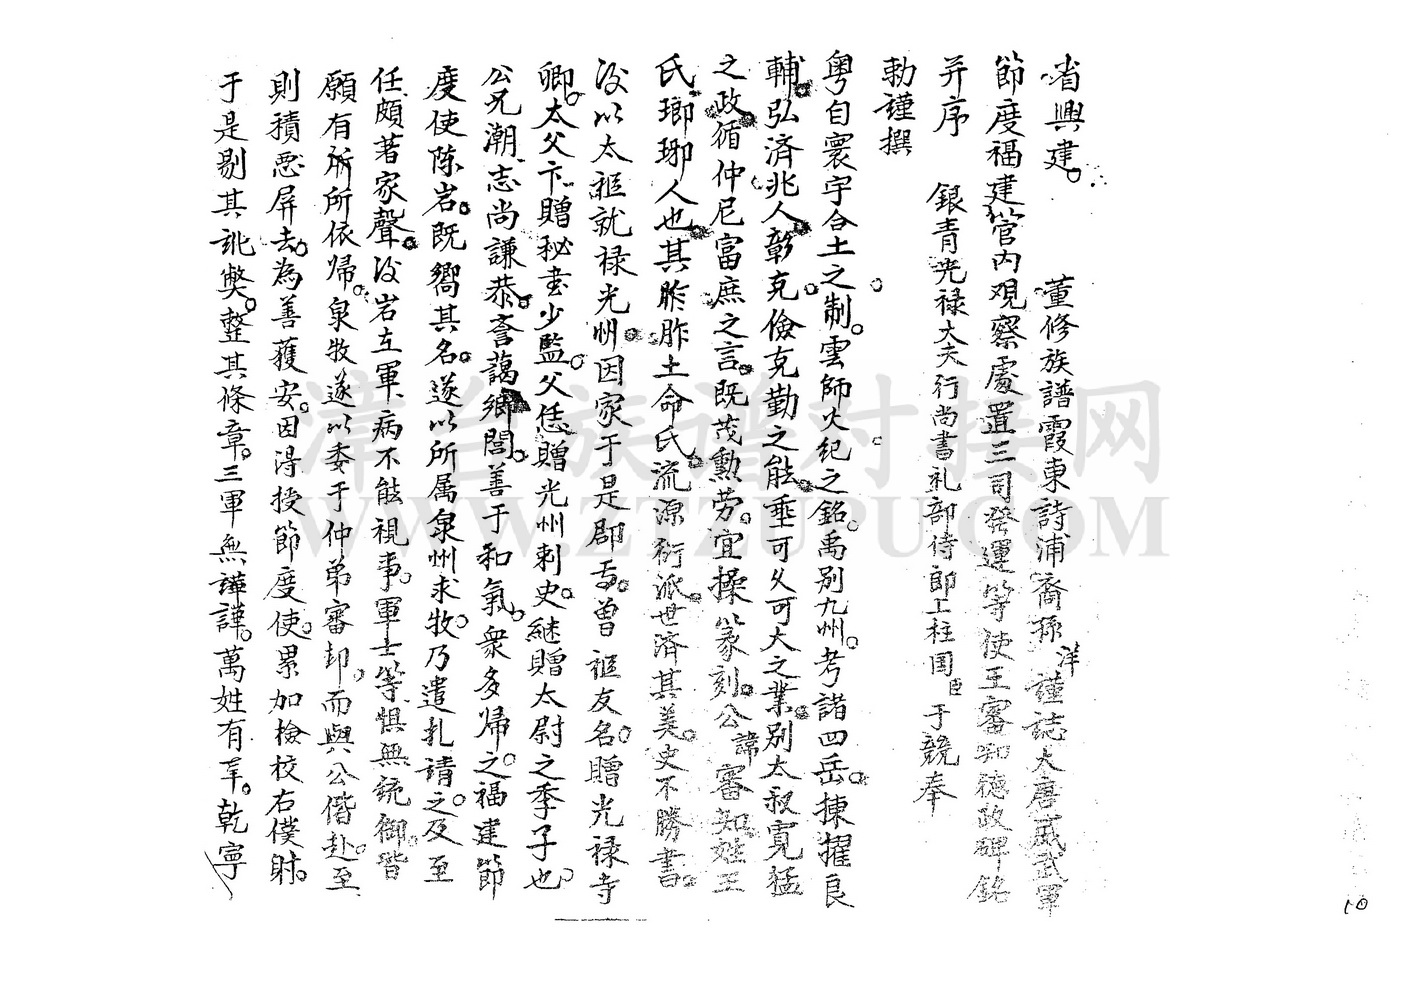 省興建。 董修族譜霞東詩浦裔孫洋謹誌大唐威武軍
節度福建管內观察處置三司發運等使王審知德政碑銘
并序 銀青光禄大夫行尚書礼部侍郎上柱国臣于競奉
勅謹撰
粤自寰宇合土之制。雲師火纪之銘。禹别九州。考諸四岳。揀擢良
輔。弘済兆人。彰克儉克勤之能。垂可久可大之業。别太叔寛猛
之政。循仲尼富庶之言。既茂勲劳。宜操篆刻。公諱審知姓王
氏瑯琊人也。其胙胙土命氏。流源衍派。世済其美。史不勝書。
後以太祖就禄光州。因家于是郡焉。曽祖友名。贈光禄寺
卿。太父卞贈秘书少監。父恁贈光州刺史。継贈太尉之季子也。
公兄潮志尚謙恭。誉藹鄉閭。善于和氣。衆多帰之。福建節
度使陈岩。既嚮其名。遂以所属泉州求牧。乃遣扎請之。及至
任頗著家聲。後岩在軍病不能視事。軍士等惧無統御。皆
願有所所依帰。泉牧遂以委于仲弟審邽。而與公偕赴。至
則積惡屏去。為善獲安。因得授節度使。累加檢校右僕射。
于是剔其訛獘。整其條章。三軍無譁譁。萬姓有年。乾寧
津台族谱对接网
WWW.ZTZUPU.COM
10